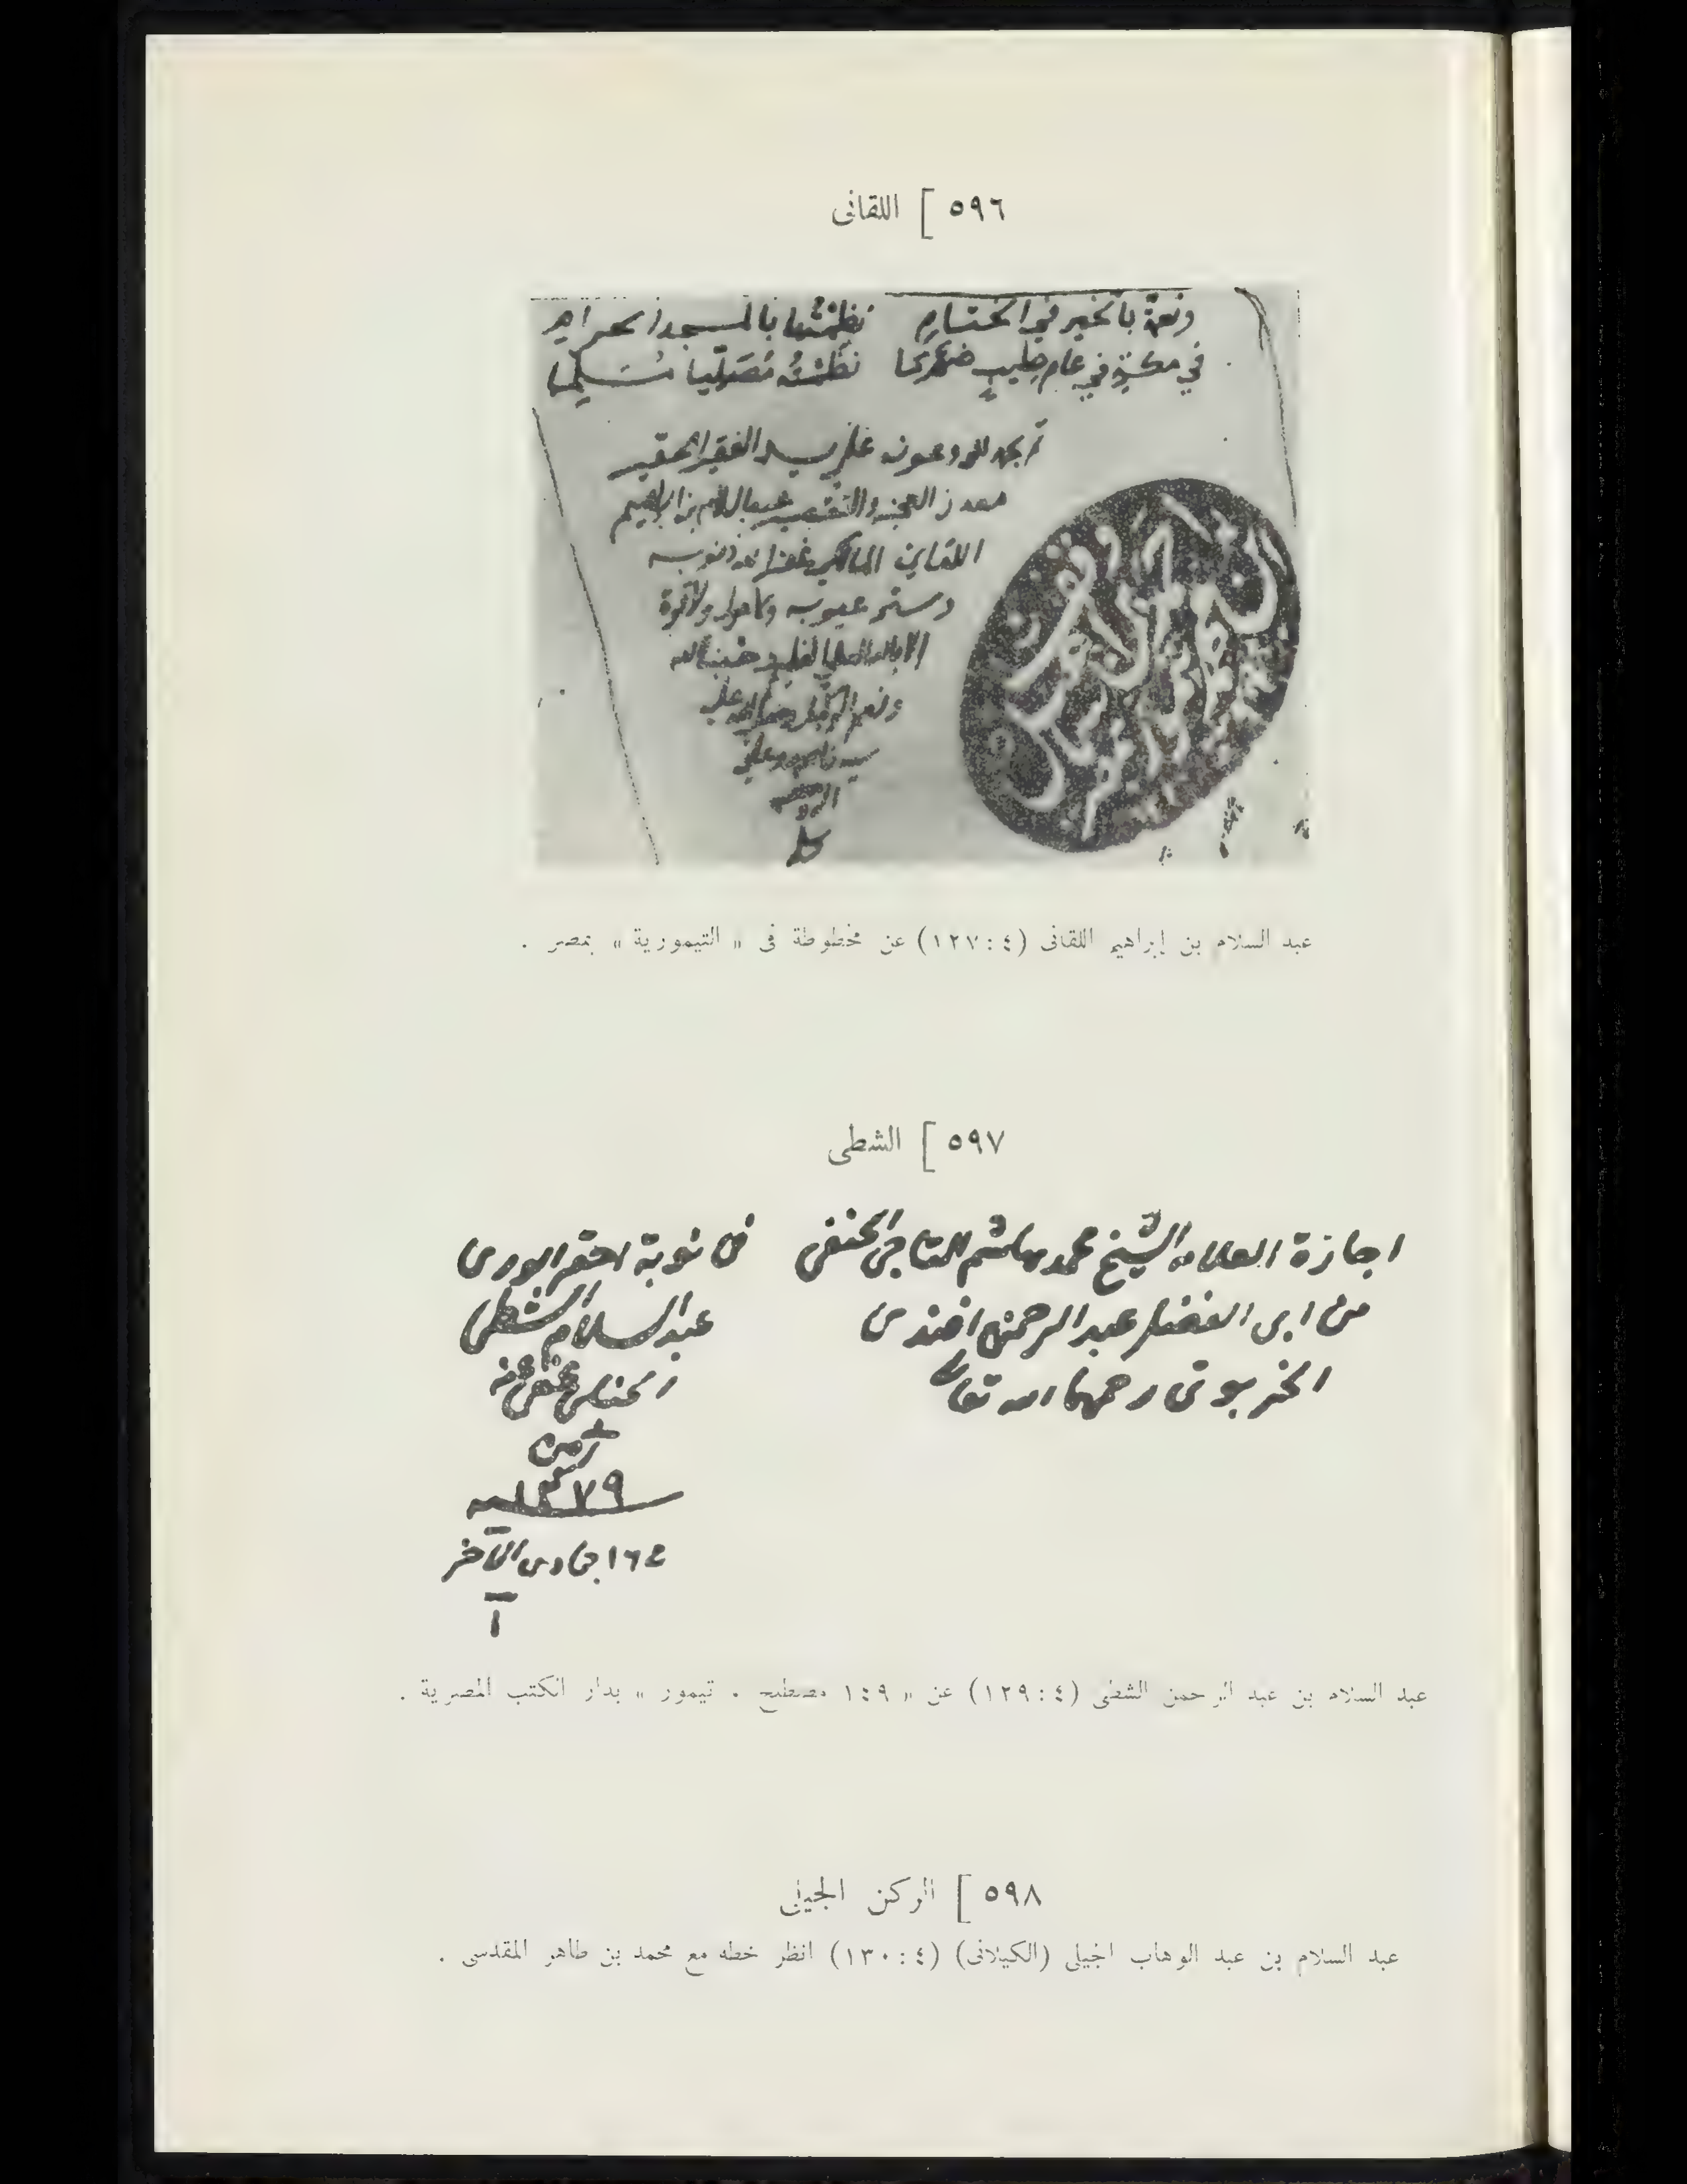 ٥٩٦ [ اللقانى
ونعمة بالخير في الختام نظمتها بالمسجد الحرام
في مكة في عام نظمته مصليا مسلما
تم بحمد الله وعونه على يد الفقير الحقير
معدن العجز والتقصير عبد السلام بن ابراهيم
اللقاني المالكي غفر الله ذنوبه
وستر عيوبه ولا حول ولا قوة
الا بالله العلي العظيم حسبنا الله
ونعم الوكيل وصلى الله على
سيدنا محمد وعلى
اله وصحبه
عبد السلام بن إبراهيم اللقانى (٤ : ١٢٧) عن مخطوطة فى « التيمورية » بمصر .
٥٩٧ [ الشطى
اجازة العلامه الشيخ محمد هاشم التاجى الحنفى
من ابى الفضل عبد الرحمن افندى
الخربوتى رحمهما الله تعالى
فى نوبة احقر الورى
عبد السلام الشطى
الحنبلى عفى عنه
١٢٧٩
١٦ جمادى الآخر
عبد السلام بن عبد الرحمن الشطى (٤ : ١٢٩) عن « مصطلح . تيمور » بدار الكتب المصرية .
٥٩٨ [ الركن الجيلى
عبد السلام بن عبد الوهاب الجيلى (الكيلانى) (٤ : ١٣٠) انظر خطه مع محمد بن طاهر المقدسى .